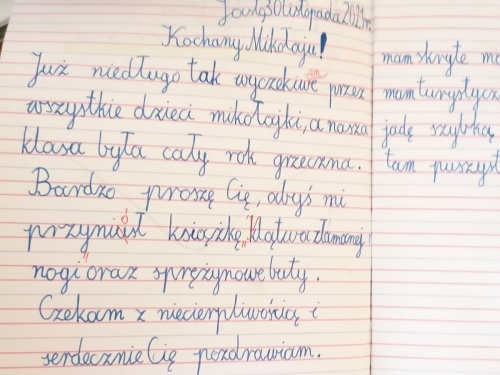 Jasło,30listopada2021r.
Kochany Mikołaju!
Już niedługo tak wyczekiwane przez
wszystkie dzieci mikołajki, a nasza
klasa była cały rok grzeczna.
Bardzo proszę Cię, abyś mi
przyniósł książkę „Klątwa złamanej
nogi" oraz sprężynowe buty.
Czekam z niecierpliwością i
serdecznie Cię pozdrawiam.
mam skryte
mam turystycz
jadę szybką
tam puszyst